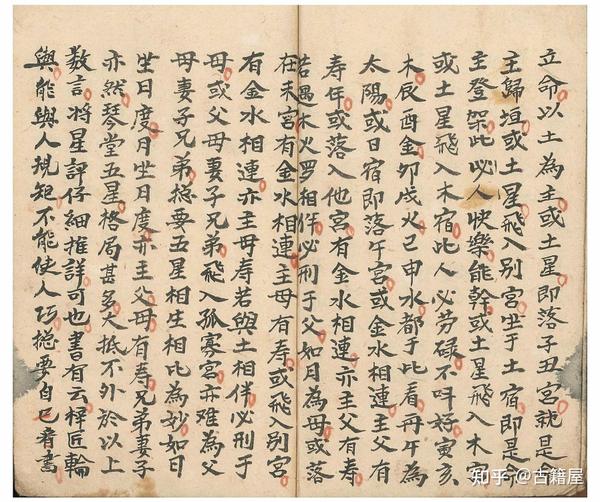 立命以土為主或土星即落子丑宮就是命
主歸垣或土星飛入別宮坐于土宿即是命
主登架此必人快樂能幹或土星飛入木宮
或土星飛入木宿此人必劳碌不吽好寅亥
木辰酉金卯戌火巳申水都于此看冊午為
太陽或日宿即落午宮或金水相連主父有
寿年或落入他宮有金水相連亦主父有寿
若遇木火罗相伴必刑于父如月為母或落
在未宮有金水相連主母有寿或飛入別宮
有金水相連亦主母寿若與土相伴必刑于
母或父母妻子兄弟飛入孤寡宮亦难為父
母妻子兄弟捴要五星相生相比為妙如日
坐日度月坐月度亦主父母有寿兄弟妻子
亦然琴堂五星格局甚多大抵不外於以上
数言将星評仔細推詳可也書有云梓匠輪
與能與人規矩不能使人巧捴要自己看書
知乎 @古籍屋